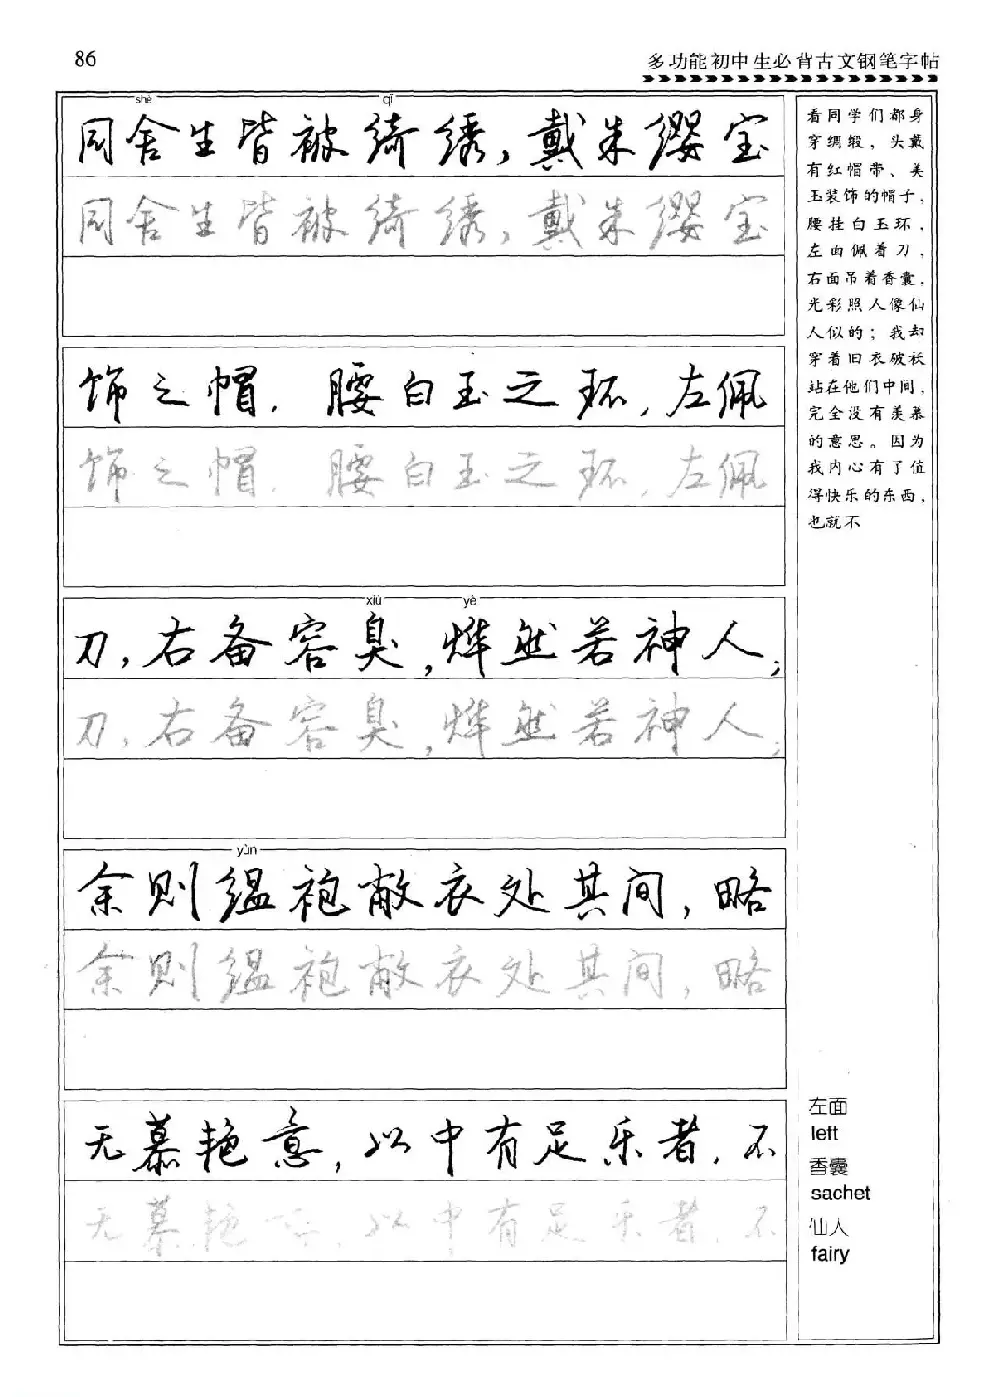 86
多功能初中生必背古文钢笔字帖
shè qǐ
同舍生皆被绮绣，戴朱缨宝
同舍生皆被绮绣，戴朱缨宝
饰之帽，腰白玉之环，左佩
饰之帽，腰白玉之环，左佩
xiù yè
刀，右备容臭，烨然若神人；
刀，右备容臭，烨然若神人；
yùn
余则缊袍敝衣处其间，略
余则缊袍敝衣处其间，略
无慕艳意，以中有足乐者，不
无慕艳意，以中有足乐者，不
看同学们都身
穿绸缎，头戴
有红帽带、美
玉装饰的帽子，
腰挂白玉环，
左面佩着刀，
右面吊着香囊，
光彩照人像仙
人似的；我却
穿着旧衣破袄
站在他们中间，
完全没有羡慕
的意思。因为
我内心有了值
得快乐的东西，
也就不
左面
left
香囊
sachet
仙人
fairy